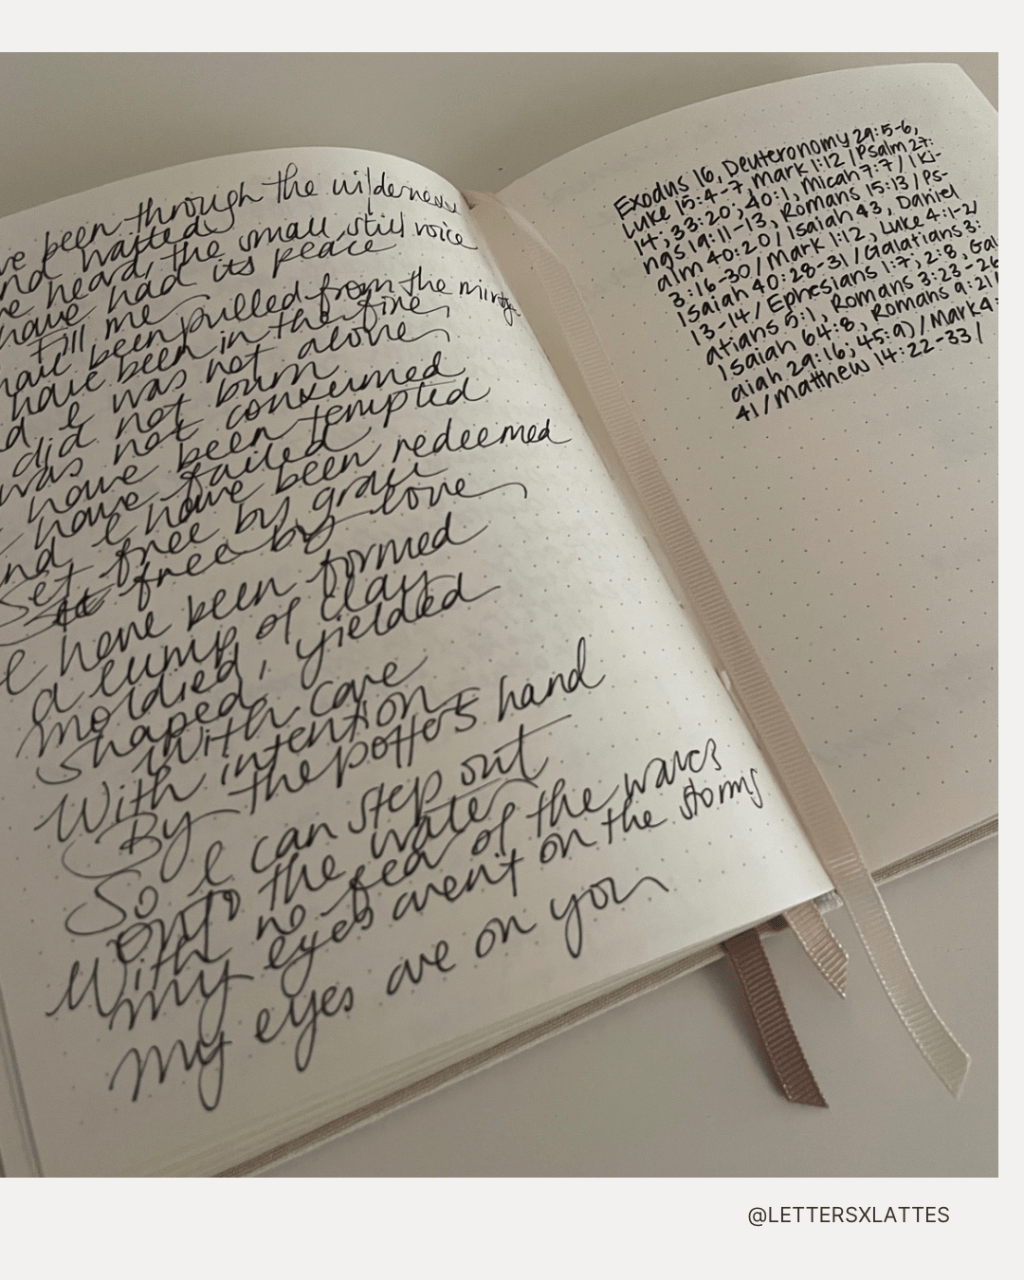 ve been through the wilderness
and waited
ve heard, the small still voice
have had its peace
Fill me
have been pulled from the miry
have been in the fire
d I was not alone
did not burn
was not consumed
have been tempted
have failed
and I have been redeemed
Set free by grace
free by love
I have been formed
a lump of clay
molded, yielded
shaped
With care
With intention
By the potters hand
So I can step out
onto the water
With no fear of the waves
my eyes aren't on the storms
my eyes are on you
Exodus 16, Deuteronomy 29:5-6,
Luke 15:4-7, Mark 1:12 / Psalm 27:
14; 33:20; 40:1, Micah 7:7 / 1 Ki-
ngs 19:11-13, Romans 15:13 / Ps-
alm 40:20 / Isaiah 43, Daniel
3:16-30 / Mark 1:12, Luke 4:1-2/
Isaiah 40:28-31 / Galatians 3:
13-14 / Ephesians 1:7; 2:8, Gal
atians 5:1, Romans 3:23-26
Isaiah 64:8, Romans 9:21
aiah 29:16; 45:9) / Mark 4:
41 / Matthew 14:22-33 /
@LETTERSXLATTES